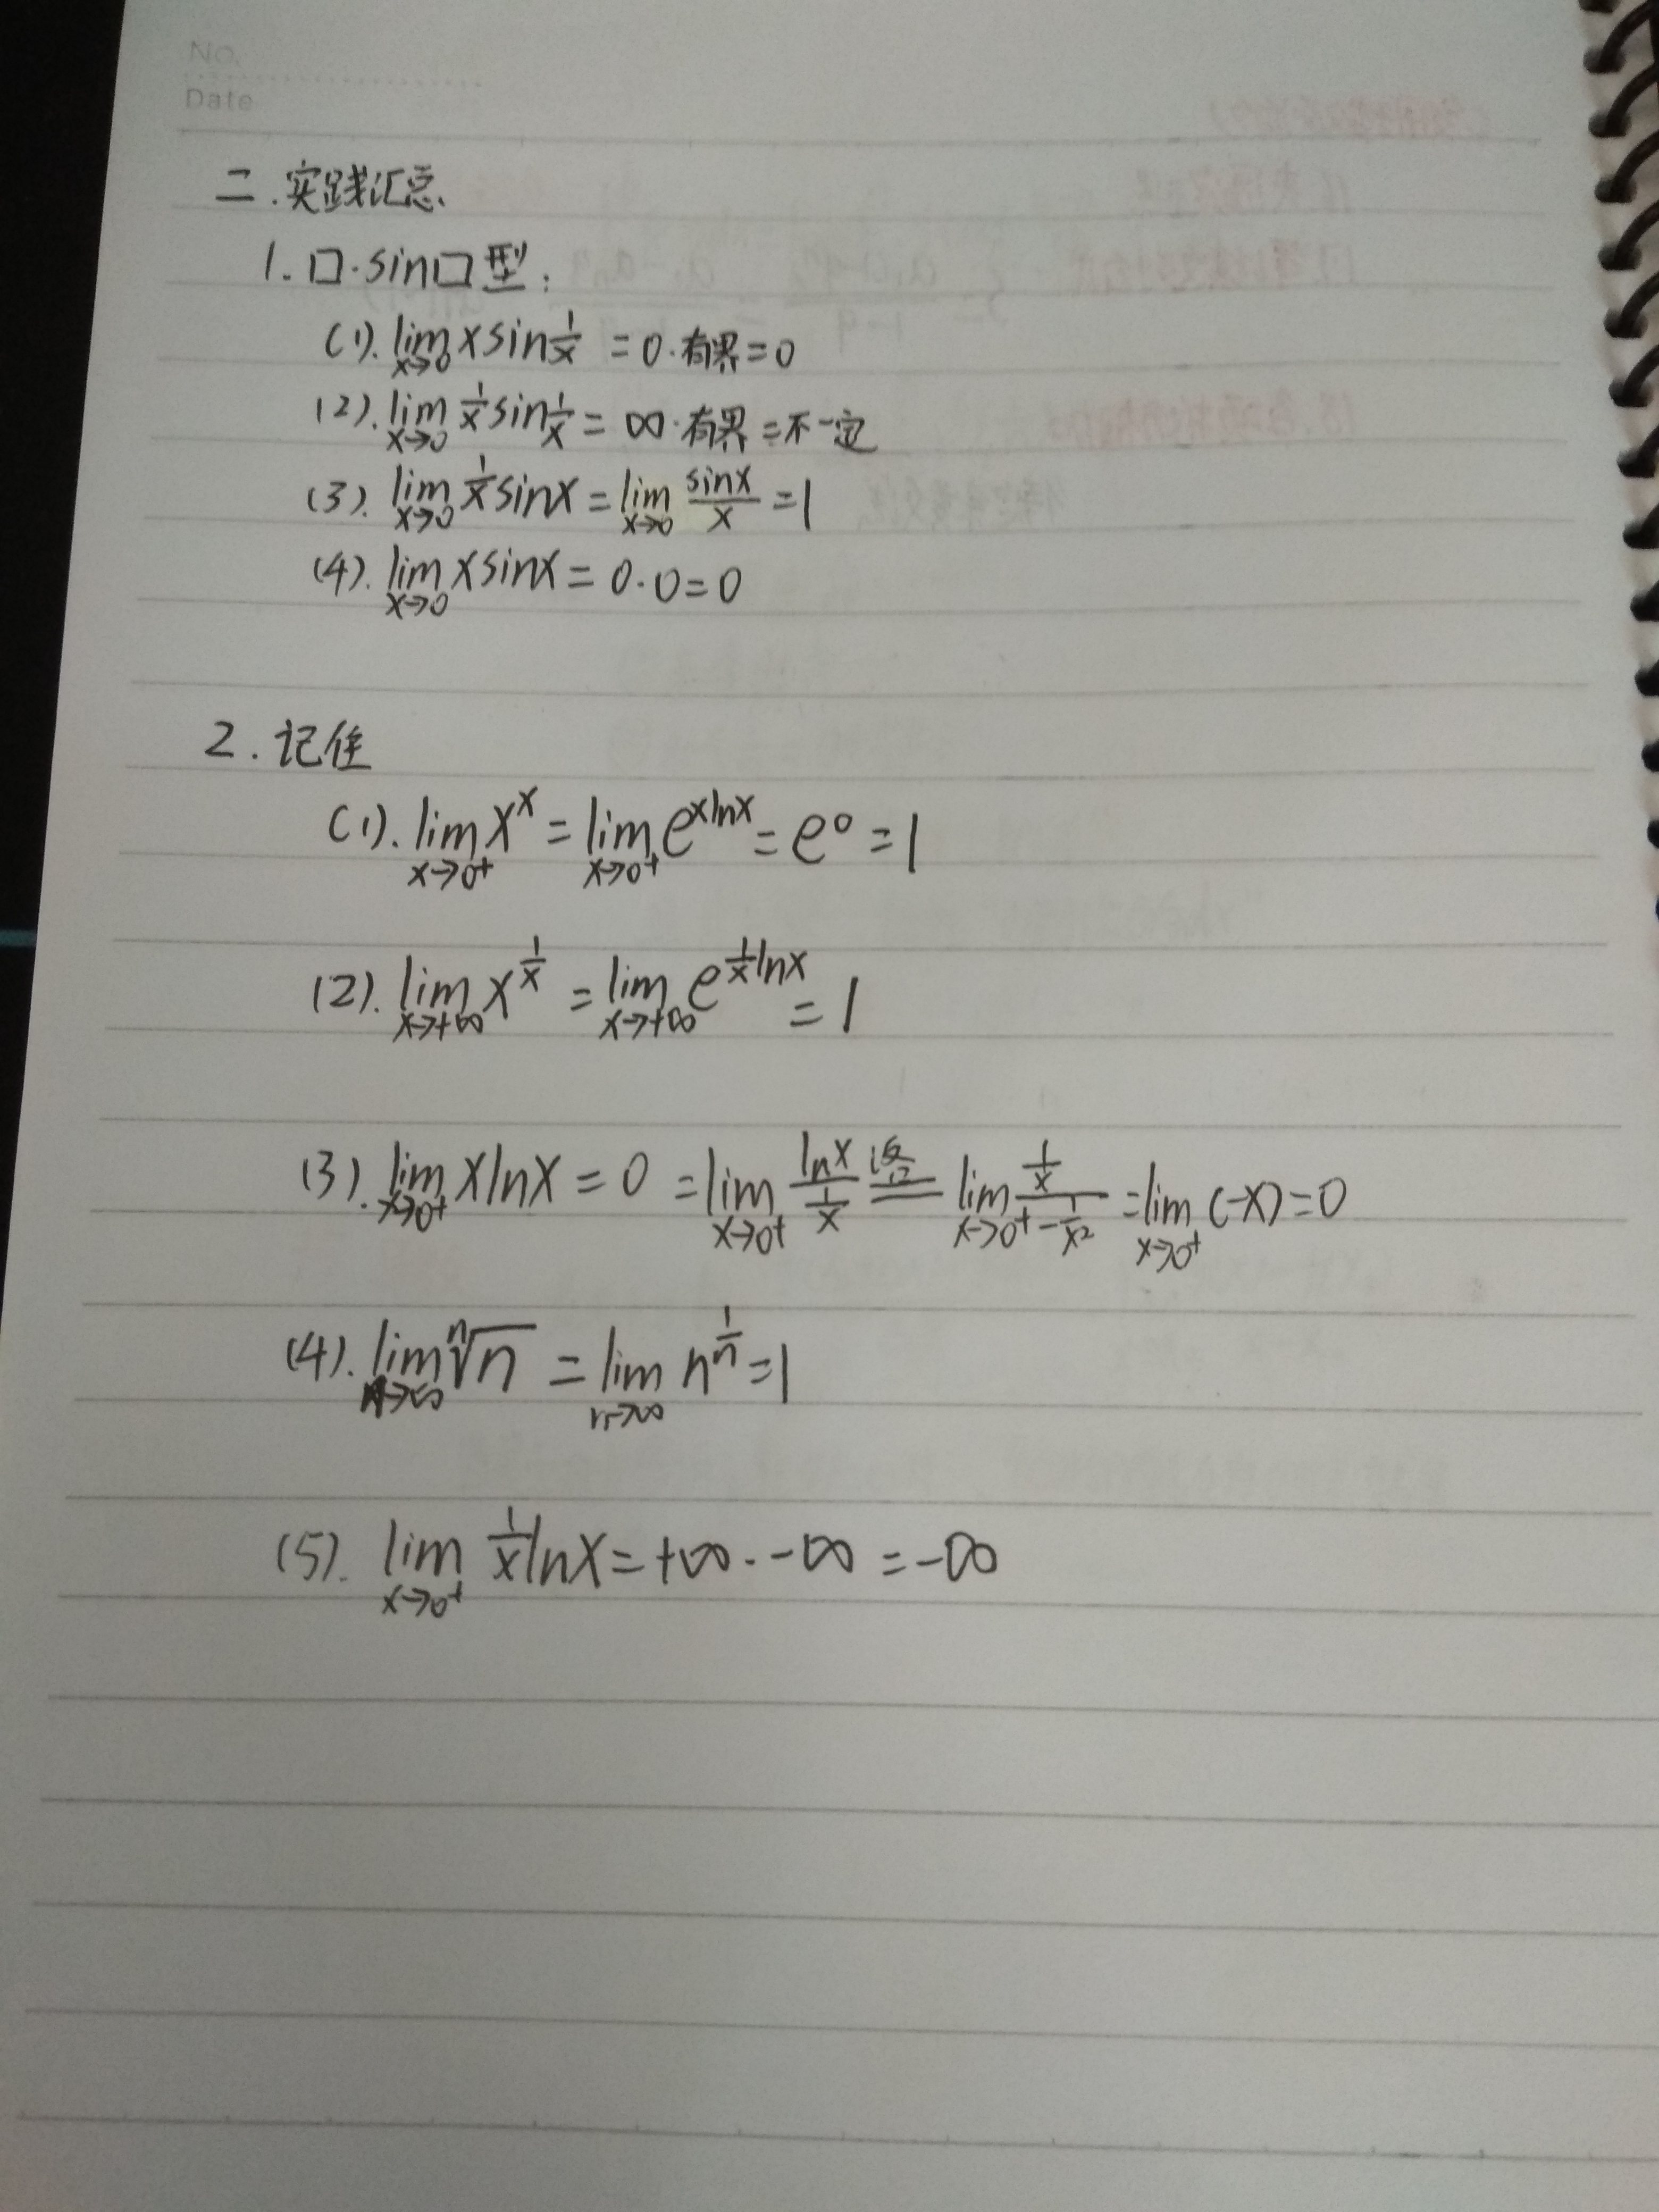 No.
Date
二.实践汇总
1.口·sin口型:
(1). lim x→0 x sin 1/x = 0·有界=0
(2). lim x→0 1/x sin 1/x = ∞·有界=不一定
(3). lim x→0 1/x sinx = lim x→0 sinx/x = 1
(4). lim x→0 x sinx = 0·0=0
2.记住
(1). lim x→0⁺ x^x = lim x→0⁺ e^(xlnx) = e^0 = 1
(2). lim x→+∞ x^(1/x) = lim x→+∞ e^(1/x lnx) = 1
(3). lim x→0⁺ xlnx = 0 = lim x→0⁺ lnx/(1/x) = lim x→0⁺ (1/x)/(-1/x²) = lim x→0⁺ (-x)=0
(4). lim n→∞ ⁿ√n = lim n→∞ n^(1/n) = 1
(5). lim x→0⁺ 1/x lnx = +∞·-∞ = -∞